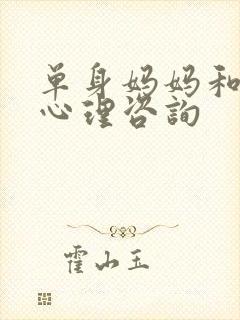 单身妈妈和
心理咨询
霍山玉